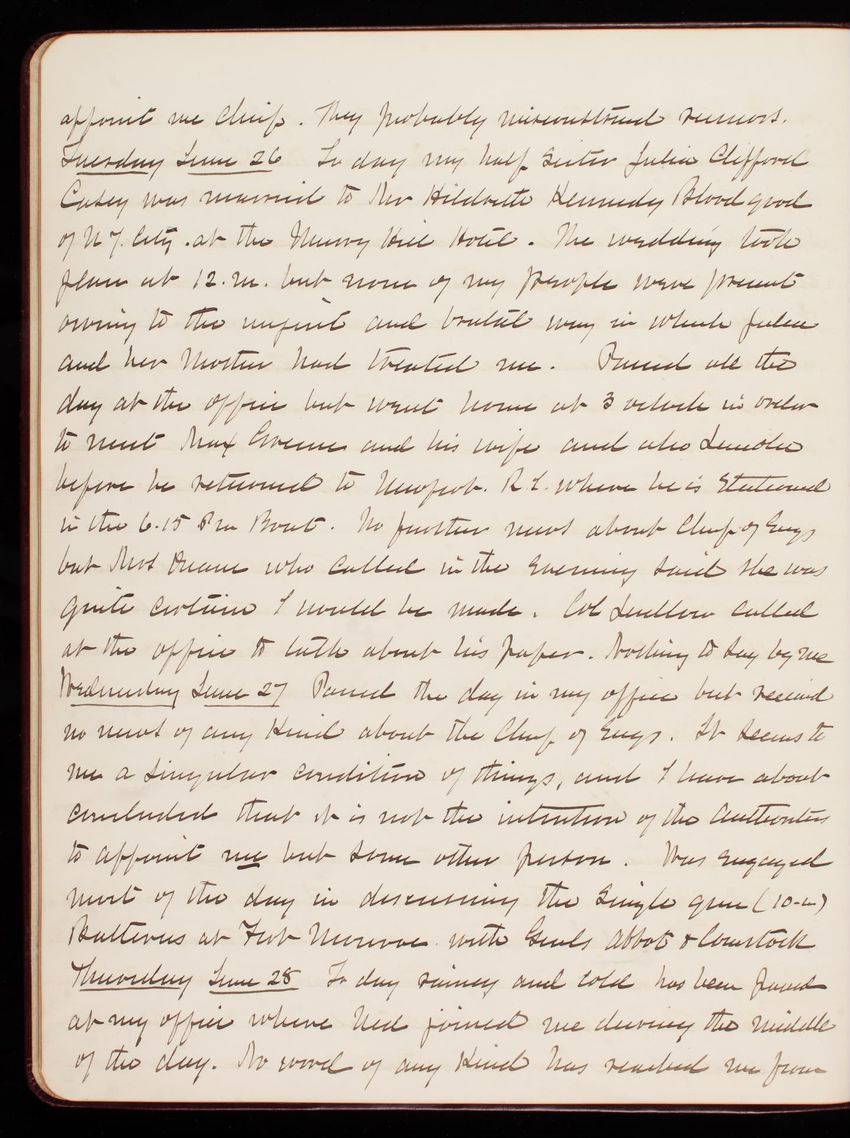 appoint me Chief. They probably misconstrued rumors.
Tuesday June 26 To day my half sister Julia Clifford
Casey was married to Mr Hildreth Kennedy Bloodgood
of N.Y. City. at the Murray Hill Hotel. The wedding took
place at 12. m. but none of my people were present
owing to the unjust and brutal way in which Julia
and her Mother had treated me. Passed all the
day at the office but went home at 3 oclock in order
to meet Max Greene and his wife and also Lincoln
before he returned to Newport. R.I. where he is Stationed
in the 6.15 P m Boat. No further news about Chief of Engs
but Mrs Duane who called in the evening said she was
quite certain I would be made. Col Ludlow called
at the office to talk about his paper. Nothing to say by me
Wednesday June 27 Passed the day in my office but received
no news of any Kind about the Chief of Engs. It seems to
me a singular condition of things, and I have about
concluded that it is not the intention of the authorities
to appoint me but some other person. Was engaged
most of the day in discussing the single gun (10-in)
Batteries at Fort Monroe with Genls Abbot & Comstock
Thursday June 28 To day rainey and cold has been passed
at my office where Ned joined me during the middle
of the day. No word of any Kind has reached me from